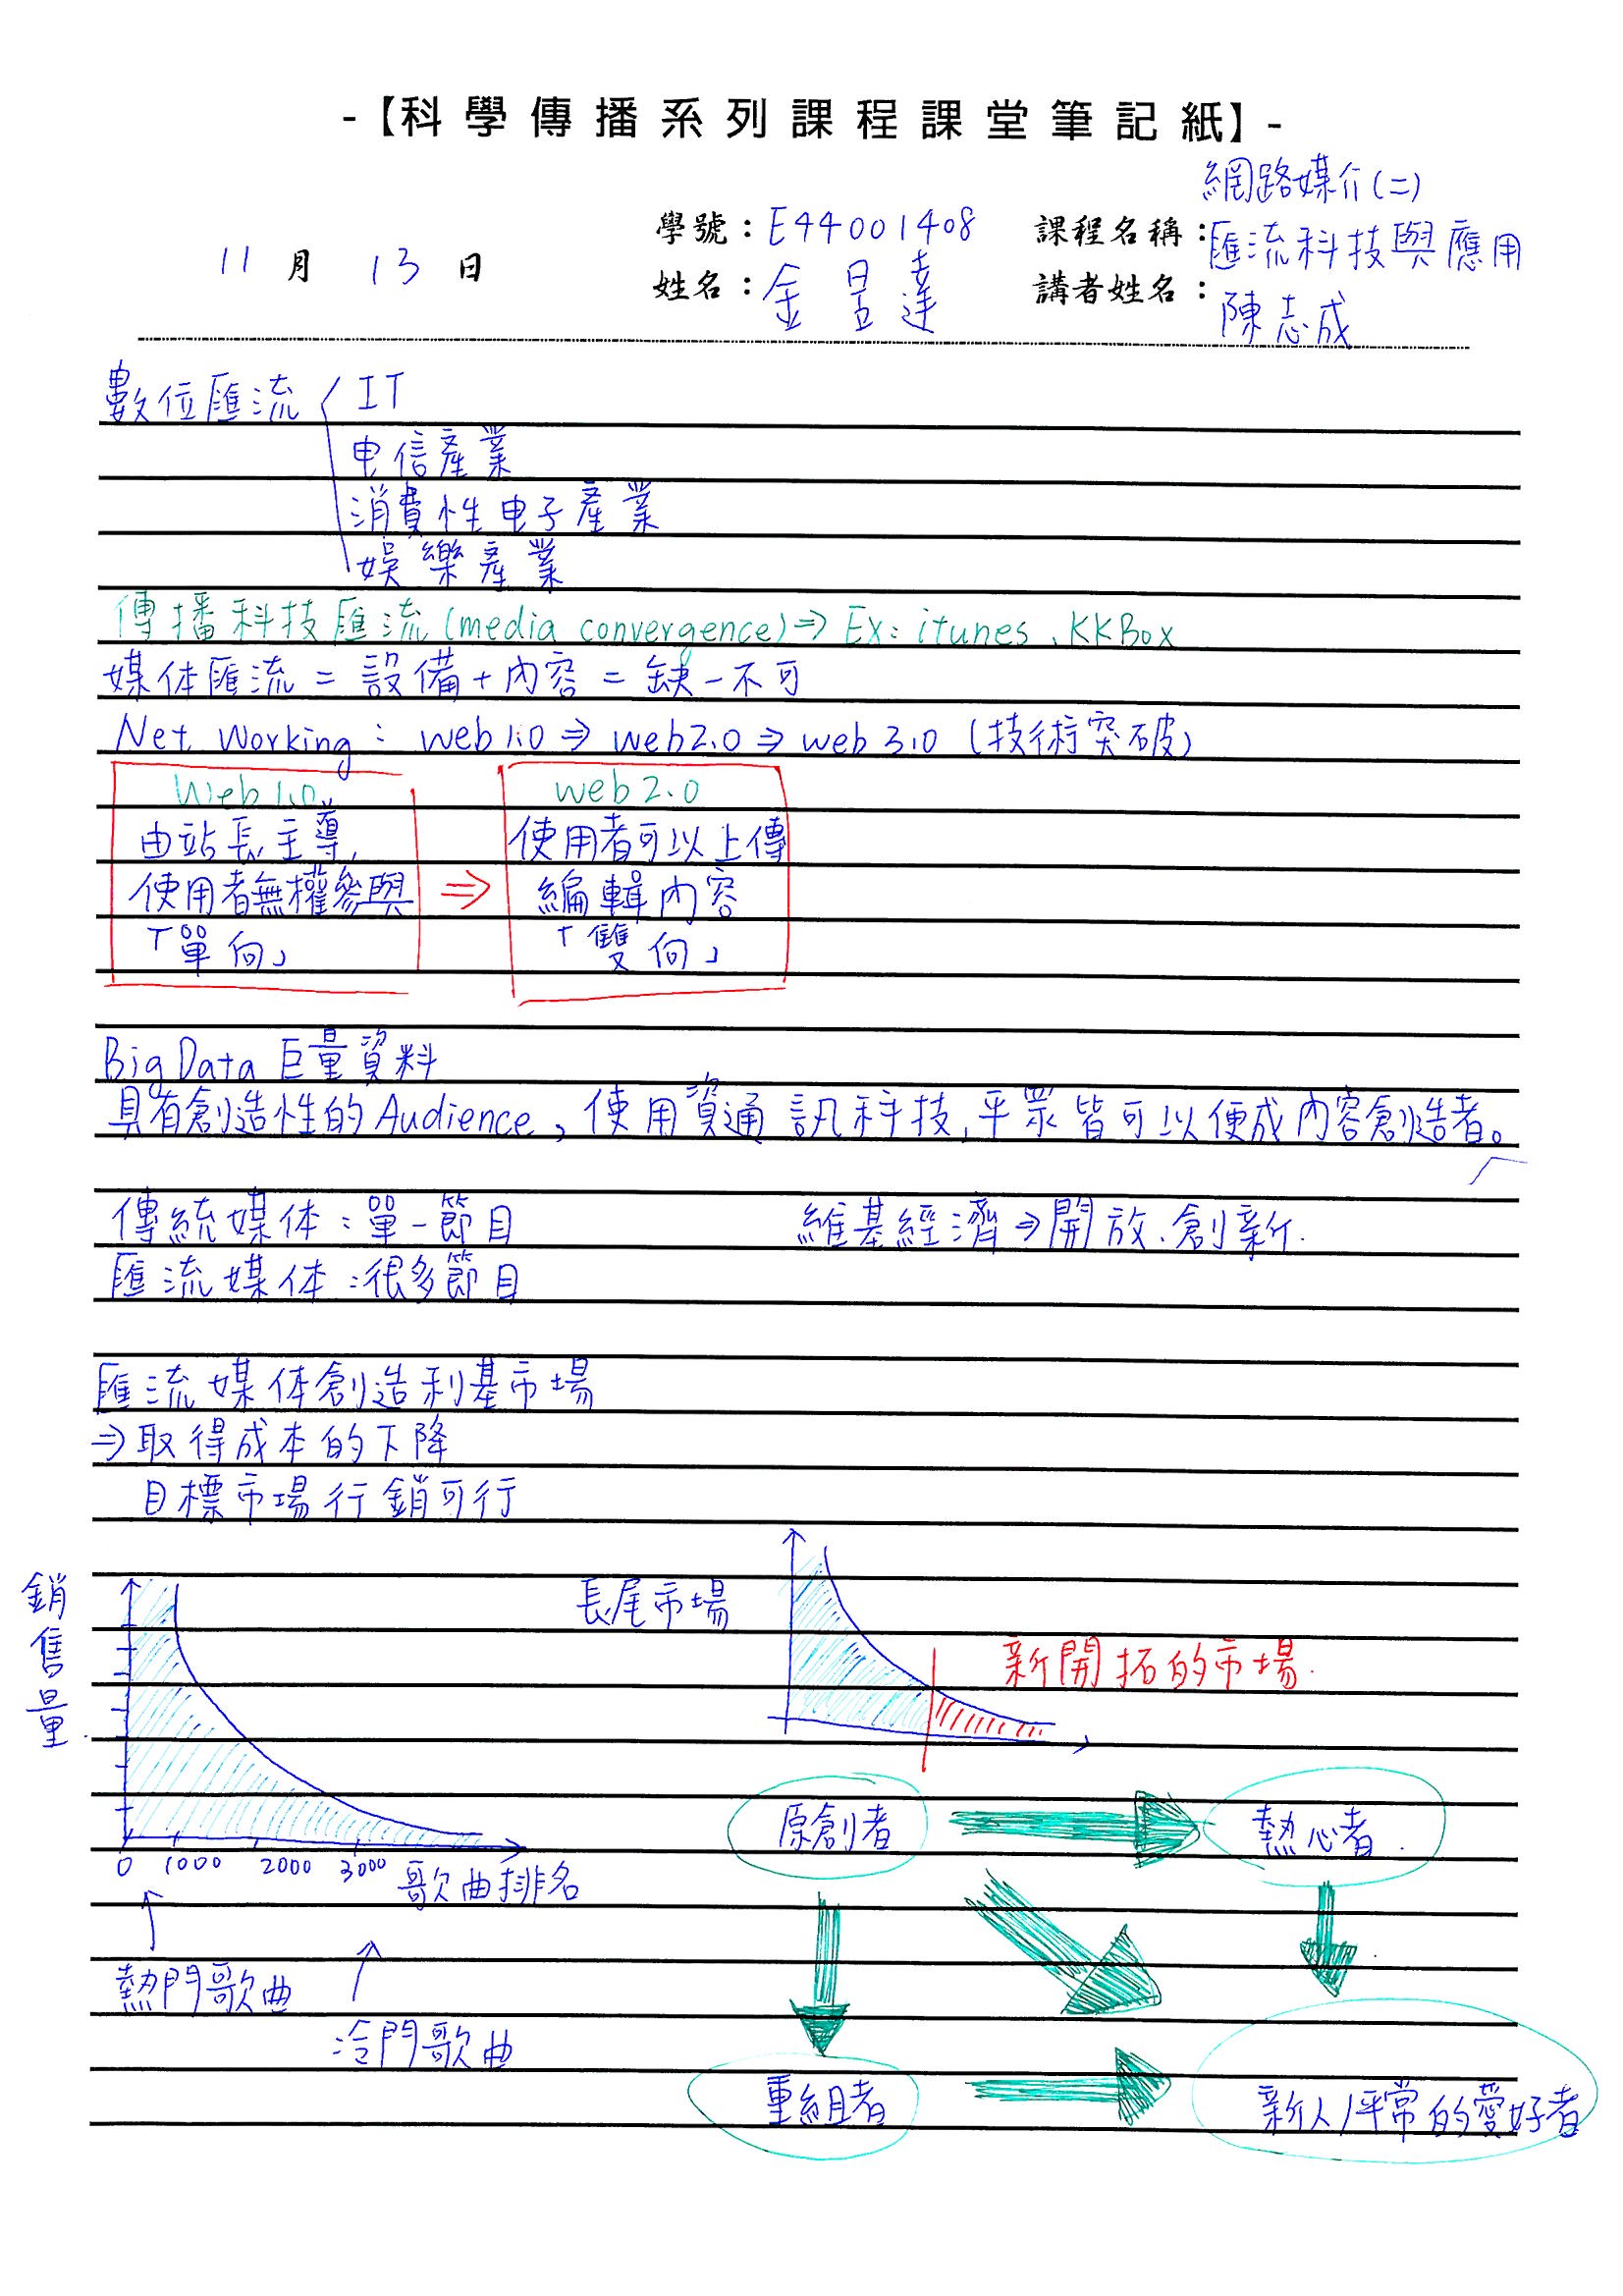 -【科學傳播系列課程課堂筆記紙】-
網路媒介(二)
學號：E44001408 課程名稱：匯流科技與應用
11月13日
姓名：金昱達 講者姓名：陳志成
數位匯流 IT
电信產業
消費性电子產業
娛樂產業
傳播科技匯流(media convergence)⇒ Ex: itunes、KKBox
媒体匯流 = 設備+內容 = 缺一不可
Net Working: web1.0 ⇒ web2.0 ⇒ web 3.0 (技術突破)
Web 1.0
由站長主導,
使用者無權參與
「單向」
⇒
web 2.0
使用者可以上傳
編輯內容
「雙向」
Big Data 巨量資料
具有創造性的Audience, 使用資通訊科技,平眾皆可以便成內容創造者。
傳統媒体:單一節目 維基經濟⇒開放、創新.
匯流媒体:很多節目
匯流媒体創造利基市場
⇒取得成本的下降
目標市場行銷可行
銷售量
0 1000 2000 3000 歌曲排名
熱門歌曲
冷門歌曲
長尾市場
新開拓的市場.
原創者 熱心者.
重組者 新人/平常的愛好者